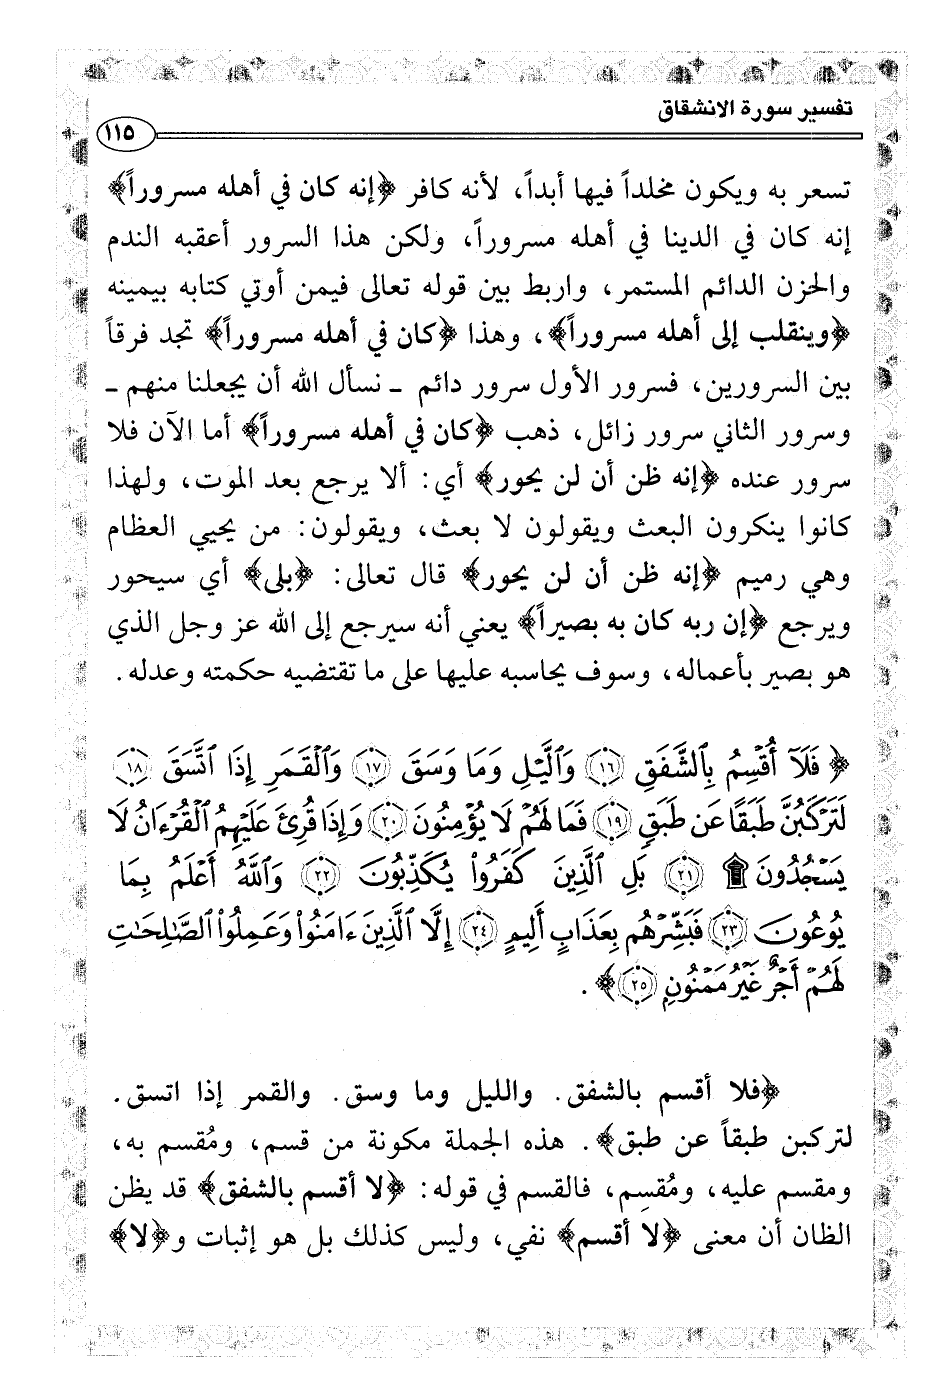 تفسير سورة الانشقاق
١١٥
تسعر به ويكون مخلداً فيها أبداً، لأنه كافر ﴿إنه كان في أهله مسروراً﴾
إنه كان في الدينا في أهله مسروراً، ولكن هذا السرور أعقبه الندم
والحزن الدائم المستمر، واربط بين قوله تعالى فيمن أوتي كتابه بيمينه
﴿وينقلب إلى أهله مسروراً﴾، وهذا ﴿كان في أهله مسروراً﴾ تجد فرقاً
بين السرورين، فسرور الأول سرور دائم ـ نسأل الله أن يجعلنا منهم ـ
وسرور الثاني سرور زائل، ذهب ﴿كان في أهله مسروراً﴾ أما الآن فلا
سرور عنده ﴿إنه ظن أن لن يحور﴾ أي: ألا يرجع بعد الموت، ولهذا
كانوا ينكرون البعث ويقولون لا بعث، ويقولون: من يحيي العظام
وهي رميم ﴿إنه ظن أن لن يحور﴾ قال تعالى: ﴿بلى﴾ أي سيحور
ويرجع ﴿إن ربه كان به بصيراً﴾ يعني أنه سيرجع إلى الله عز وجل الذي
هو بصير بأعماله، وسوف يحاسبه عليها على ما تقتضيه حكمته وعدله.
﴿ فَلَآ أُقْسِمُ بِٱلشَّفَقِ ﴿١٦﴾ وَٱلَّيْلِ وَمَا وَسَقَ ﴿١٧﴾ وَٱلْقَمَرِ إِذَا ٱتَّسَقَ ﴿١٨﴾
لَتَرْكَبُنَّ طَبَقًا عَن طَبَقٍ ﴿١٩﴾ فَمَا لَهُمْ لَا يُؤْمِنُونَ ﴿٢٠﴾ وَإِذَا قُرِئَ عَلَيْهِمُ ٱلْقُرْءَانُ لَا
يَسْجُدُونَ ۩ ﴿٢١﴾ بَلِ ٱلَّذِينَ كَفَرُوا۟ يُكَذِّبُونَ ﴿٢٢﴾ وَٱللَّهُ أَعْلَمُ بِمَا
يُوعُونَ ﴿٢٣﴾ فَبَشِّرْهُم بِعَذَابٍ أَلِيمٍ ﴿٢٤﴾ إِلَّا ٱلَّذِينَ ءَامَنُوا۟ وَعَمِلُوا۟ ٱلصَّٰلِحَٰتِ
لَهُمْ أَجْرٌ غَيْرُ مَمْنُونٍۭ ﴿٢٥﴾﴾.
﴿فلا أقسم بالشفق. والليل وما وسق. والقمر إذا اتسق.
لتركبن طبقاً عن طبق﴾. هذه الجملة مكونة من قسم، ومُقسم به،
ومقسم عليه، ومُقسِم، فالقسم في قوله: ﴿لا أقسم بالشفق﴾ قد يظن
الظان أن معنى ﴿لا أقسم﴾ نفي، وليس كذلك بل هو إثبات و﴿لا﴾